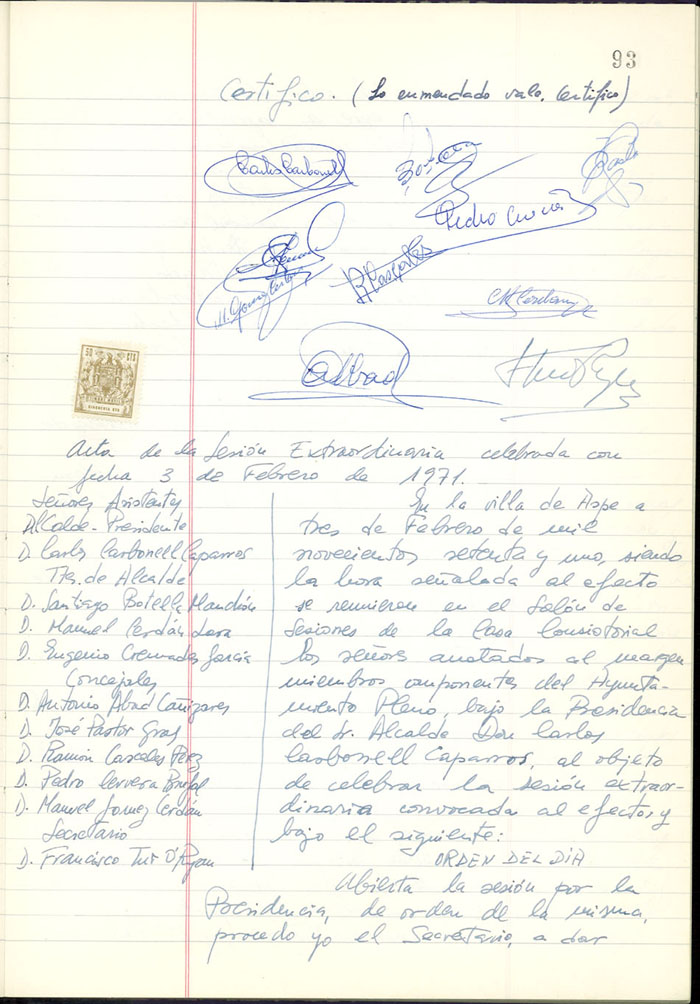 93
Certifico. (Lo enmendado vale. Certifico)
Carlos Carbonell
Pedro
M. Gomez Cerdan
R Cascales
Abad
50 CTS
Acta de la Sesión Extraordinaria celebrada con
fecha 3 de Febrero de 1971.
Señores Asistentes
Alcalde-Presidente
D. Carlos Carbonell Caparros
Tts. de Alcalde
D. Santiago Botella Mandión
D. Manuel Cerdán Lara
D. Eugenio Cremades García
Concejales
D. Antonio Abad Cañizares
D. José Pastor Gras
D. Ramón Cascales Pérez
D. Pedro Cervera
D. Manuel Gomez Cerdán
Secretario
D. Francisco Tur O'Ryan
En la villa de Aspe a
tres de Febrero de mil
novecientos setenta y uno, siendo
la hora señalada al efecto
se reunieron en el Salón de
Sesiones de la Casa Consistorial
los señores anotados al margen
miembros componentes del Ayunta-
miento Pleno, bajo la Presidencia
del Sr. Alcalde Don Carlos
Carbonell Caparros, al objeto
de celebrar la sesión extraor-
dinaria convocada al efecto y
bajo el siguiente:
ORDEN DEL DIA
Abierta la sesión por la
Presidencia, de orden de la misma,
procedo yo el Secretario, a dar